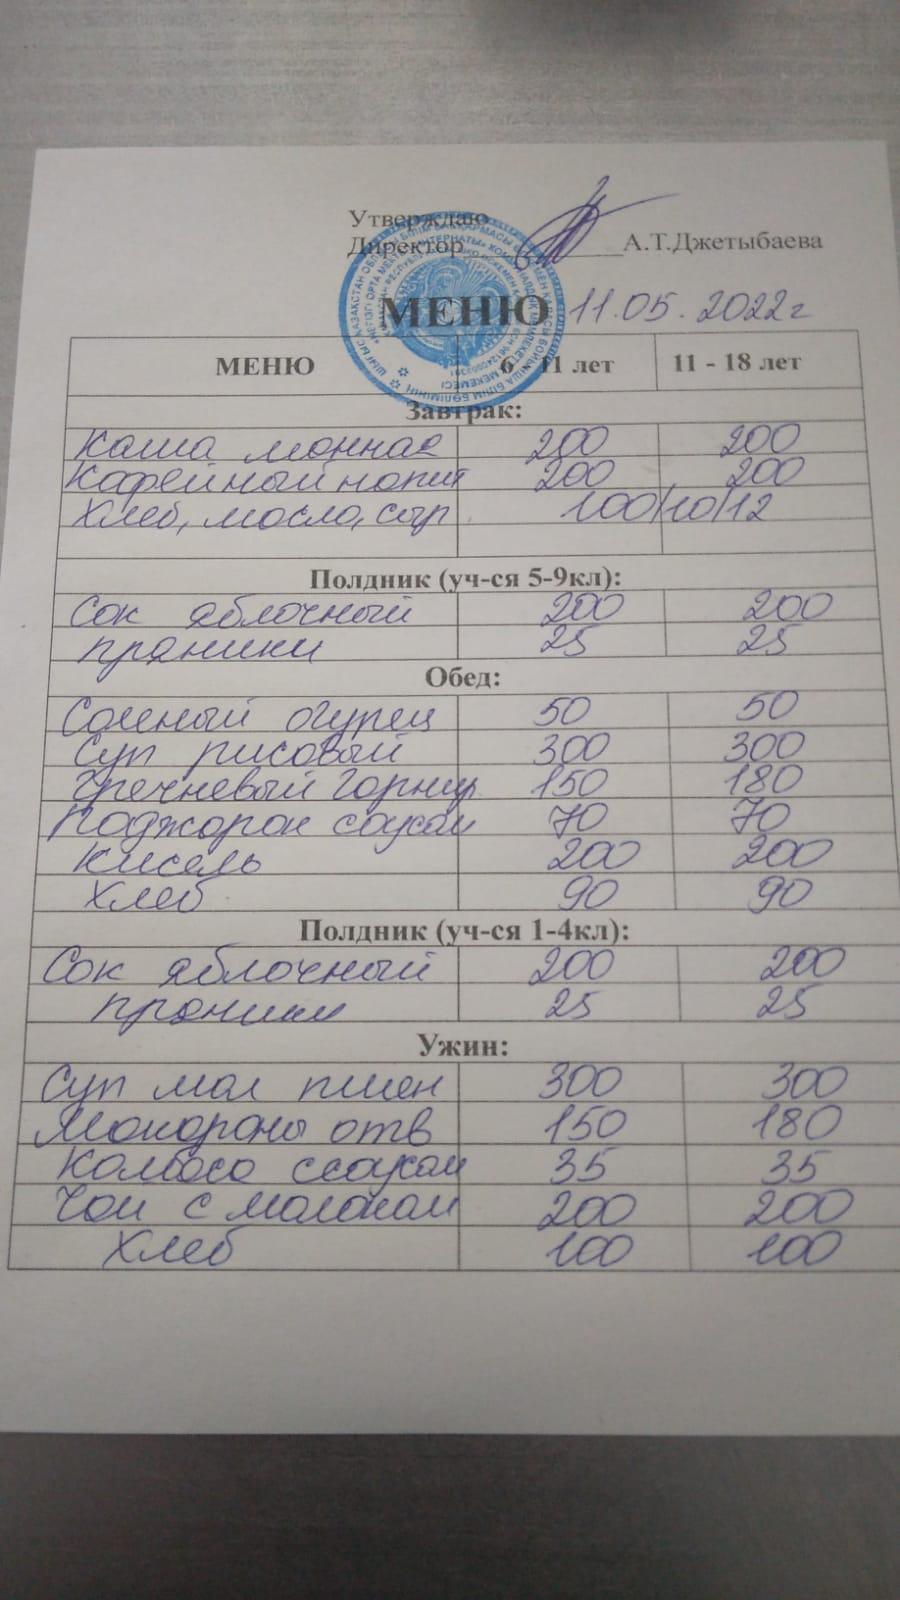 Утверждаю
Директор ________ А.Т.Джетыбаева
МЕНЮ 11.05.2022г
МЕНЮ 6 11 лет 11 - 18 лет
Завтрак:
Каша манная 200 200
Кофейный напит 200 200
Хлеб, масло, сыр 100/10/12
Полдник (уч-ся 5-9кл):
Сок яблочный 200 200
пряники 25 25
Обед:
Соленый огурец 50 50
Суп рисовый 300 300
Гречневый гарнир 150 180
Поджарка соусом 70 70
Кисель 200 200
Хлеб 90 90
Полдник (уч-ся 1-4кл):
Сок яблочный 200 200
пряники 25 25
Ужин:
Суп мол пшен 300 300
Макароны отв 150 180
Колбаса ссоусом 35 35
Чай с молоком 200 200
Хлеб 100 100